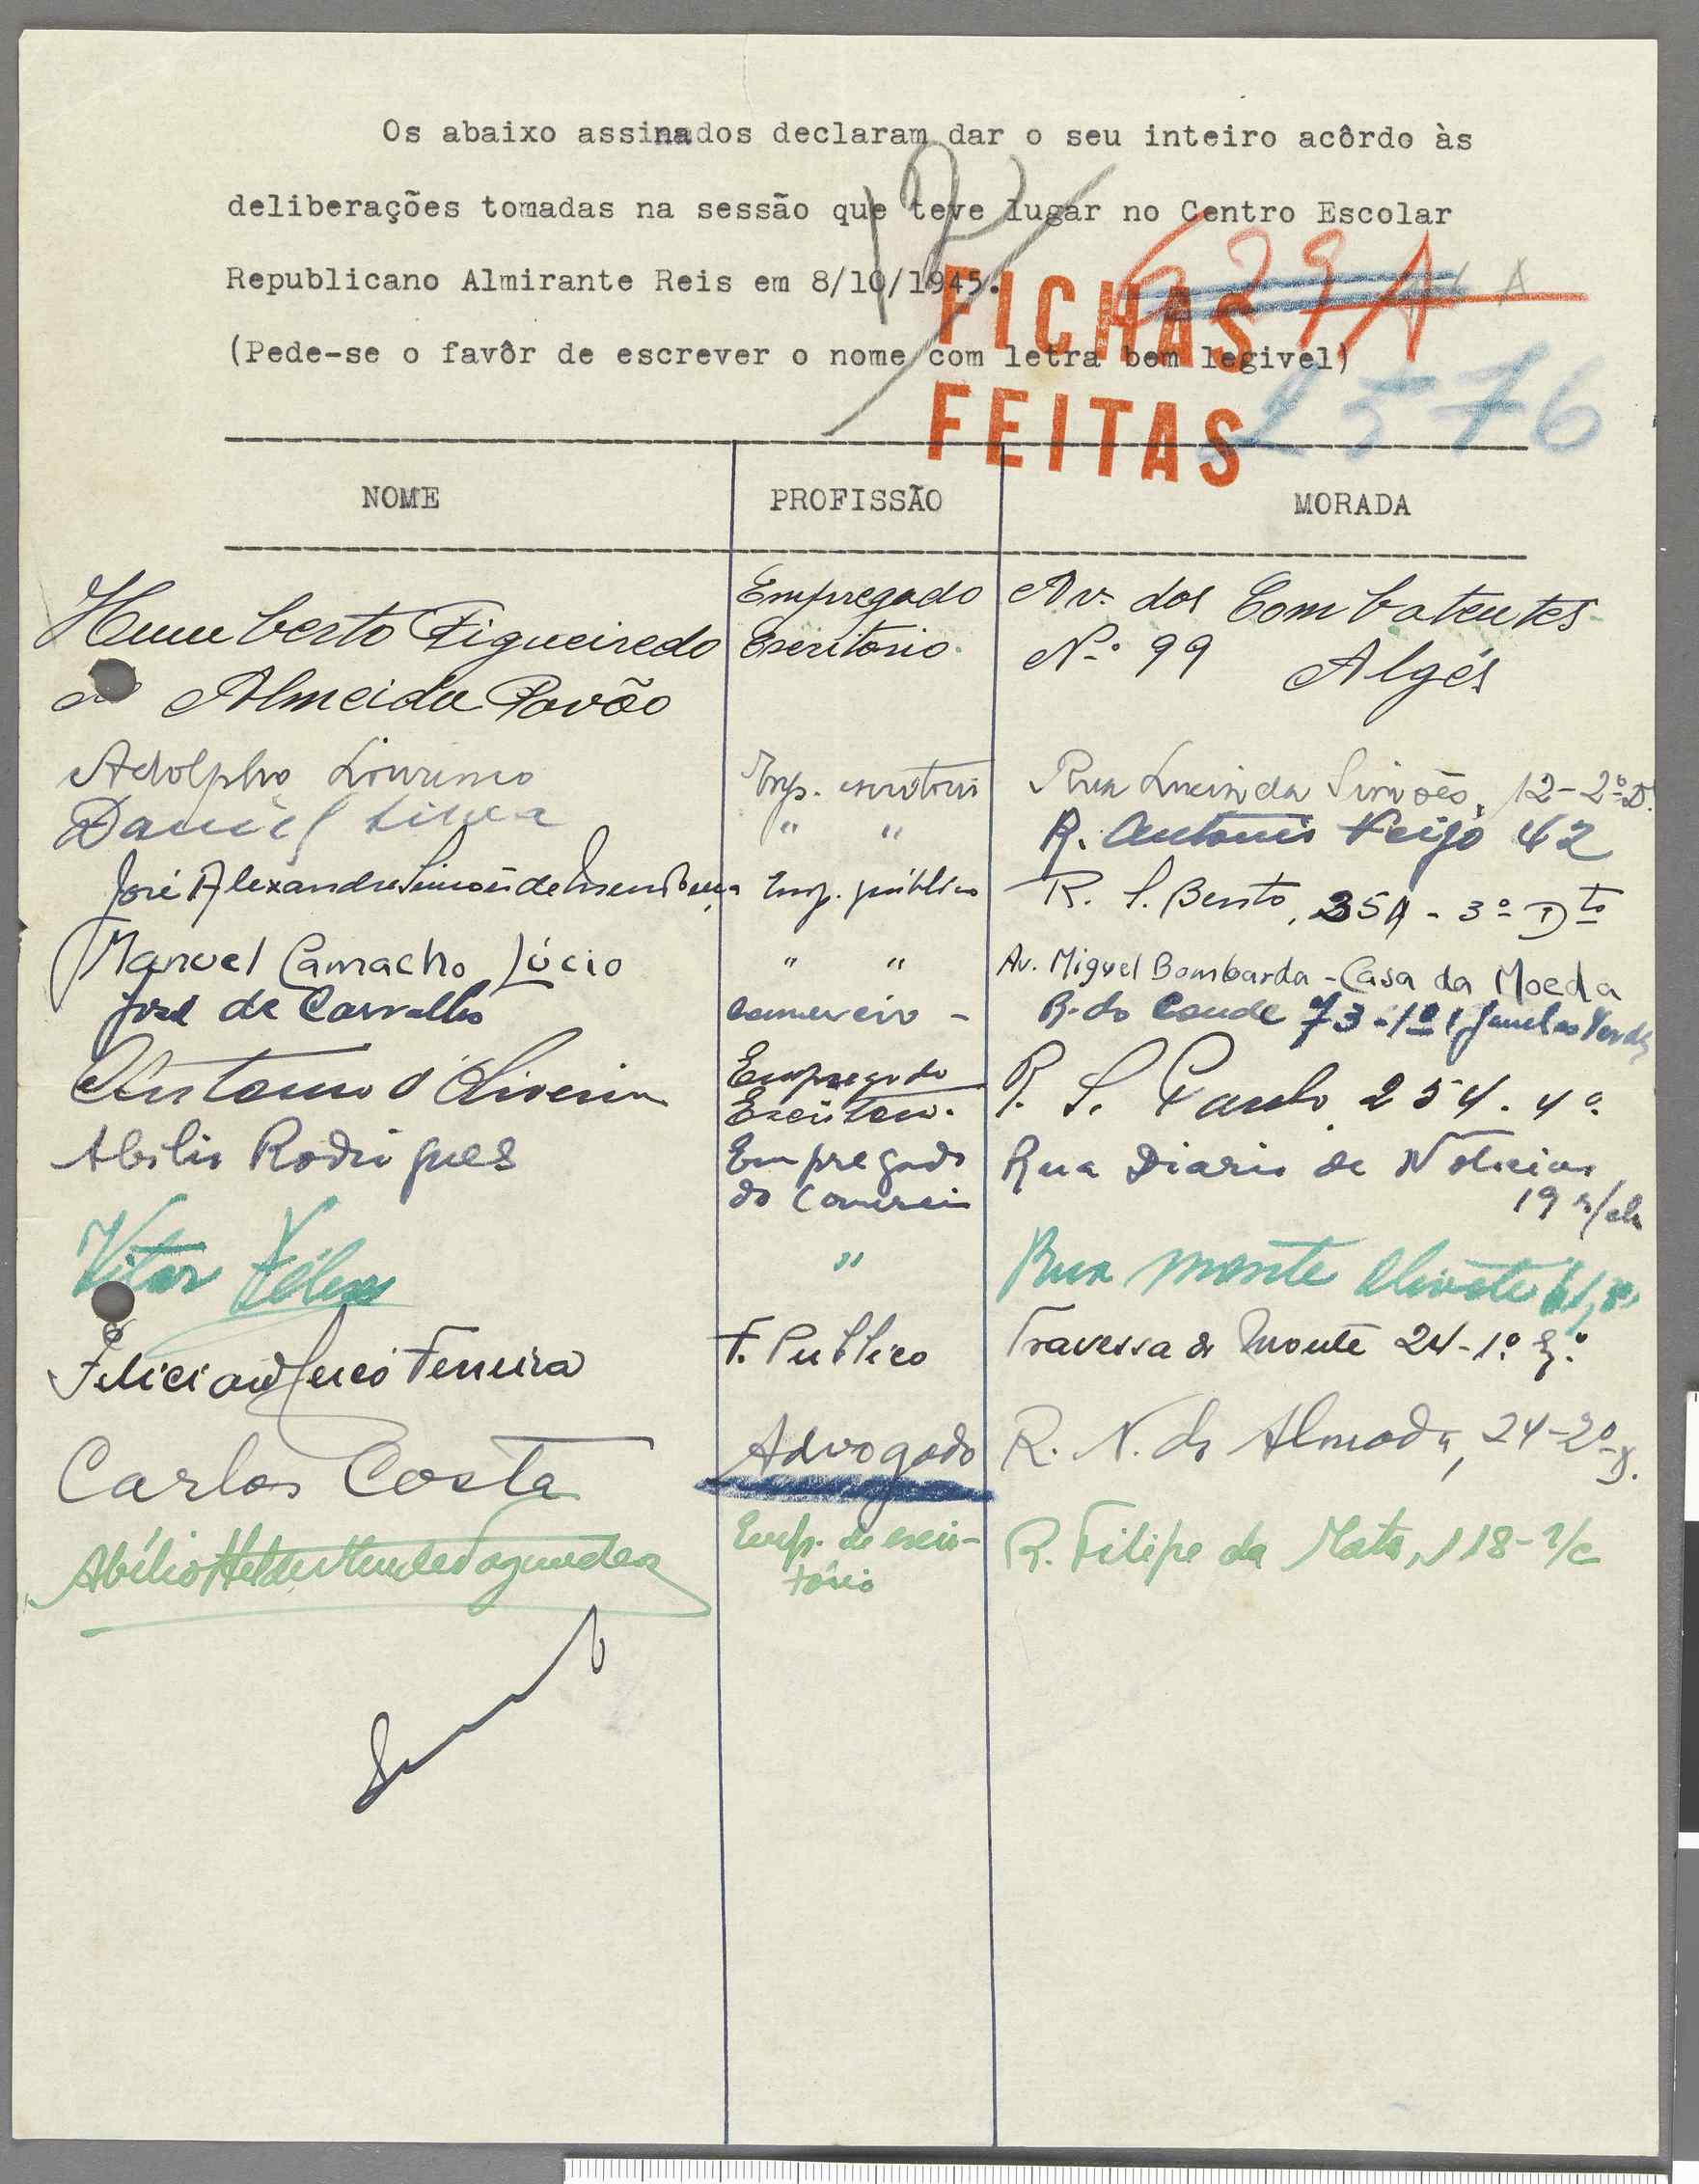 Os abaixo assinados declaram dar o seu inteiro acôrdo às
deliberações tomadas na sessão que teve lugar no Centro Escolar
Republicano Almirante Reis em 8/10/1945.
(Pede-se o favôr de escrever o nome com letra bem legivel)
FICHAS
FEITAS
629 A
2576
NOME PROFISSÃO MORADA
Humberto Figueiredo Empregado Escritorio. Av. dos Combatentes
de Almeida Pavão Nº 99 Algés
Adolpho Lourenço Emp. escritorio Rua Lucinda Simões, 12-2º D.
Daniel Silva " " R. Antonio Feijó 42
José Alexandre Simões de Emp. público R. S. Bento, 35A - 3º Dto
Manuel Camacho Lúcio " " Av. Miguel Bombarda - Casa da Moeda
José de Carvalho comercio - R. do Conde 73-1º (Janelas Verdes
Antonio d'Oliveira Empregado Escritorio. R. S. Paulo 254. 4º
Abilio Rodrigues Empregado do Comercio Rua Diario de Noticias
19 r/ch
Vitor Félix " Rua Monte Olivete 61,
Feliciano Ferreira F. Publico Travessa do Monte 24-1º E.º
Carlos Costa Advogado R. N. do Almada, 24-2º D.
Abílio Helder Mendes Fagundes Emp. de escri- R. Filipe da Mata, 118-r/c
tório